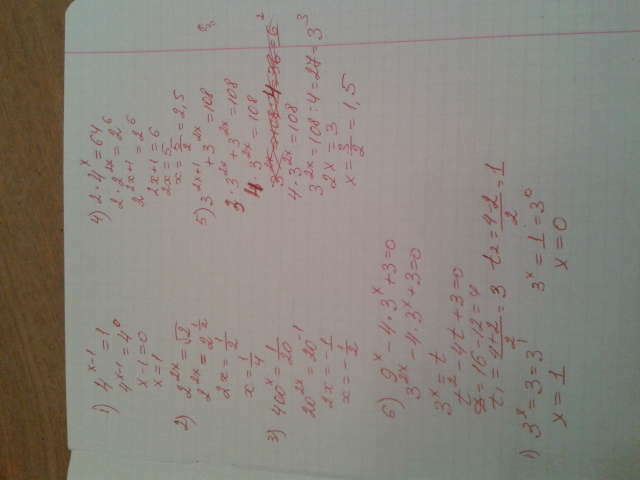 1) 4^(x-1) = 1
4^(x-1) = 4^0
x-1=0
x=1
2) 2^(2x) = √2
2^(2x) = 2^(1/2)
2x = 1/2
x = 1/4
3) 400^x = 1/20
20^(2x) = 20^(-1)
2x = -1
x = -1/2
4) 2·4^x = 64
2·2^(2x) = 2^6
2^(2x+1) = 2^6
2x+1=6
2x=5
x = 5/2 = 2,5
5) 3^(2x+1) + 3^(2x) = 108
3·3^(2x) + 3^(2x) = 108
4·3^(2x) = 108
4·3^(2x) = 108
3^(2x) = 108:4=27=3^3
2x = 3
x = 3/2 = 1,5
6) 9^x - 4·3^x + 3=0
3^(2x) - 4·3^x + 3=0
3^x = t
t^2 - 4t + 3=0
D = 16-12=4
t1 = (4+2)/2 = 3 t2 = (4-2)/2 = 1
1) 3^x = 3 = 3^1 3^x = 1 = 3^0
x = 1 x = 0